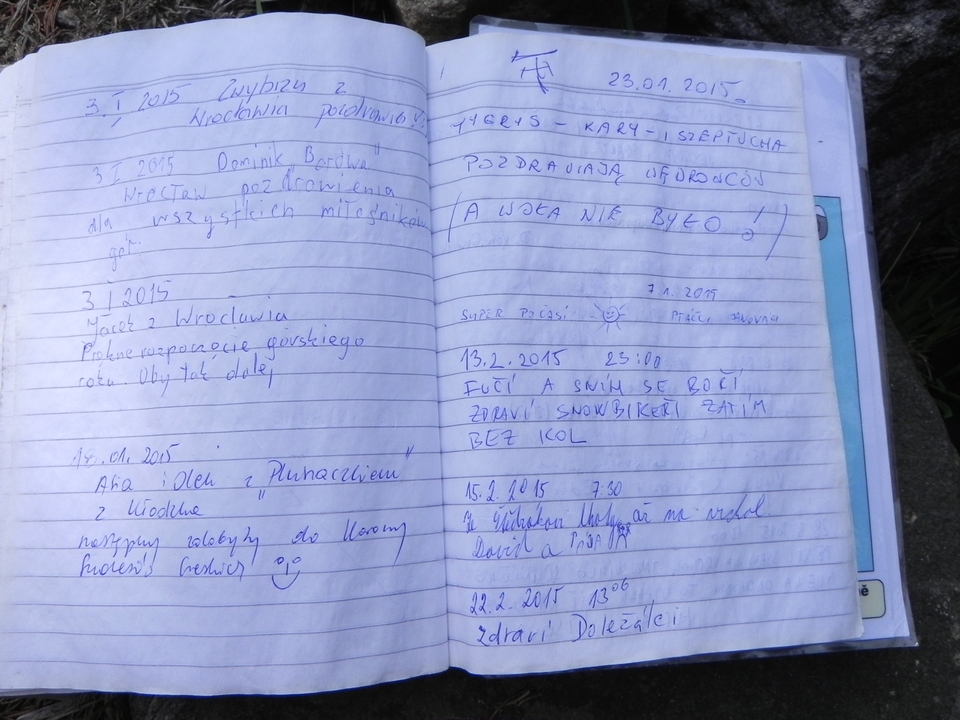 3. I 2015
z
Wrocławia
3 I 2015 Dominik
Wrocław pozdrowienia
dla wszystkich miłośników
gór.
3 I 2015
Jacek z Wrocławia
Piękne rozpoczęcie górskiego
roku. Oby tak dalej
18.01.2015
Ania i Olek z
z Kłodzka
następny zdobyty do Korony
23.01.2015.
TYGRYS - KARY - I SZEPTUCHA
POZDRAWIAJĄ WĘDROWCÓW
(A WOŁA NIE BYŁO!)
7.1.2015
SUPER POČASÍ
13.2.2015 23:00
FUČÍ A SNÍH SE BOŘÍ
ZDRAVÍ SNOWBIKEŘI ZATÍM
BEZ KOL
15.2.2015 7:30
až na vrchol
David a
22.2.2015 13 06
Zdraví Doležálci
ě